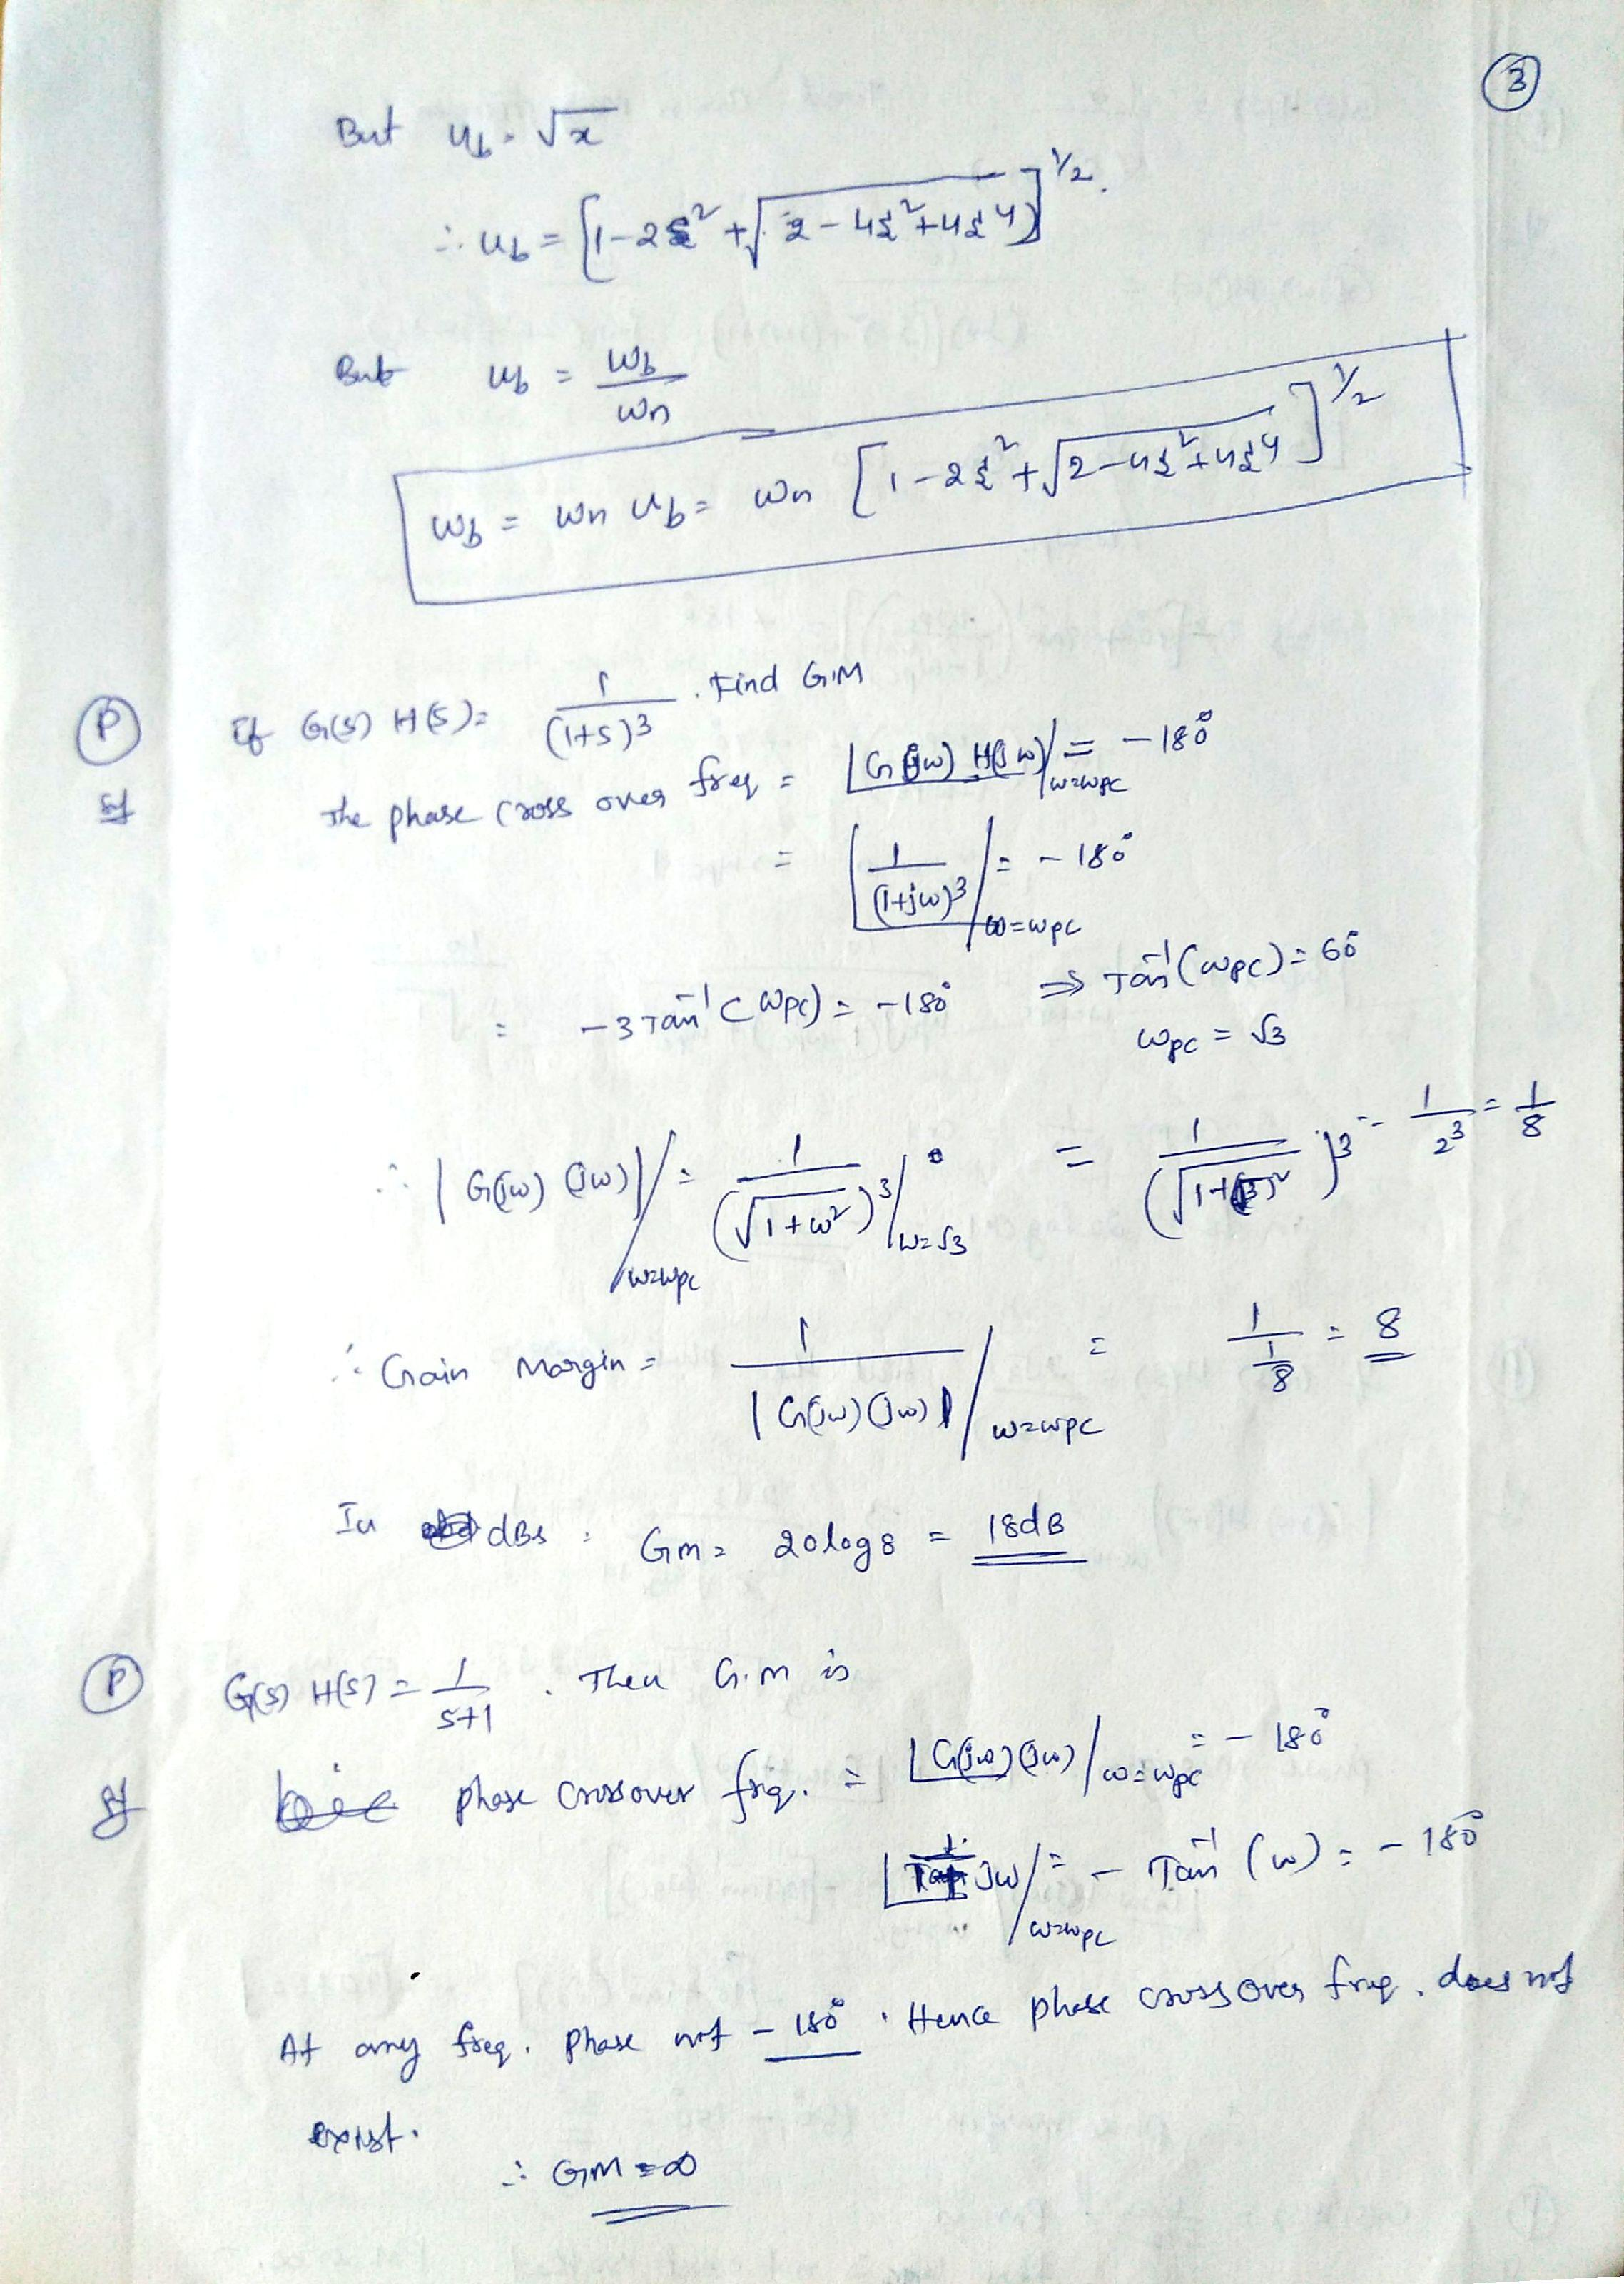 3
But u_b = √x
∴ u_b = [1-2ξ² + √(2-4ξ²+4ξ⁴)]^(1/2).
But u_b = ω_b/ω_n
ω_b = ω_n u_b = ω_n [1-2ξ² + √(2-4ξ²+4ξ⁴)]^(1/2)
P If G(s) H(s) = 1/(1+s)³ . Find G.M
Sol The phase cross over freq = ∠G(jω) H(jω)/ω=ωpc = -180°
= ∠1/(1+jω)³ /ω=ωpc = -180°
= -3 Tan⁻¹(ωpc) = -180° ⇒ Tan⁻¹(ωpc) = 60°
ωpc = √3
∴ |G(jω) (jω)|/ω=ωpc = 1/(√(1+ω²))³ /ω=√3 = 1/(√(1+(√3)²))³ = 1/2³ = 1/8
∴ Gain Margin = 1/|G(jω)(jω)| /ω=ωpc = 1/(1/8) = 8
In dBs : Gm = 20log8 = 18dB
P G(s) H(s) = 1/(s+1) . Then G.m is
Sol phase crossover friq. = ∠G(jω)(jω)/ω=ωpc = -180°
jω/ω=ωpc = - Tan⁻¹(ω) = -180°
At any freq. phase not -180° . Hence phase crossover friq. does not
exist.
∴ GM = ∞